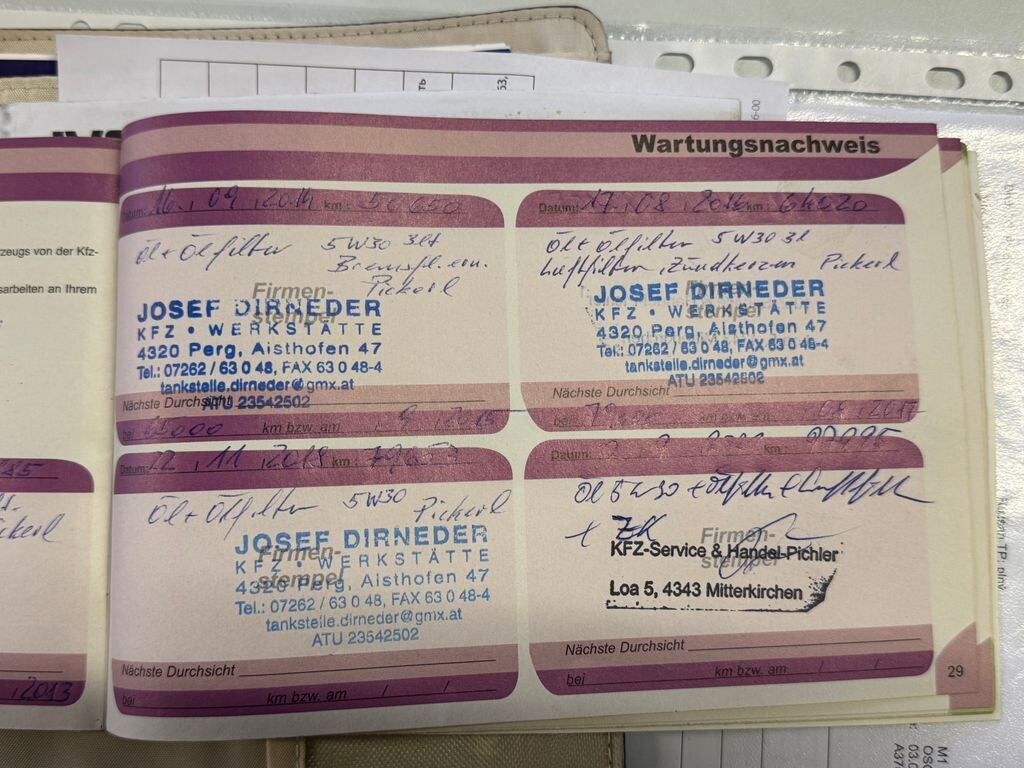 53,
6-00
Wartungsnachweis
zeugs von der Kfz-
sarbeiten an Ihrem
Datum: 16. 09 .2014 km: 52650
Öl + Ölfilter 5W30 3lt
Bremsfl. ern.
Pickerl
Firmen-
stempel
JOSEF DIRNEDER
KFZ • WERKSTÄTTE
4320 Perg, Aisthofen 47
Tel.: 07262 / 63 0 48, FAX 63 0 48-4
tankstelle.dirneder@gmx.at
ATU 23542502
Nächste Durchsicht
bei 65000 km bzw. am / 9 / 2015
Datum: 17 .08 .2016 km: 64520
Öl + Ölfilter 5W30 3l
Luftfilter, Zündkerzen Pickerl
Firmen-
stempel
JOSEF DIRNEDER
KFZ • WERKSTÄTTE
4320 Perg, Aisthofen 47
Tel.: 07262 / 63 0 48, FAX 63 0 48-4
tankstelle.dirneder@gmx.at
ATU 23542502
Nächste Durchsicht
bei km bzw. am 08 / 2017
Datum: 22 . 11 .2018 km:
Öl + Ölfilter 5W30 Pickerl
Firmen-
stempel
JOSEF DIRNEDER
KFZ • WERKSTÄTTE
4320 Perg, Aisthofen 47
Tel.: 07262 / 63 0 48, FAX 63 0 48-4
tankstelle.dirneder@gmx.at
ATU 23542502
Nächste Durchsicht
bei km bzw. am / /
Datum: km:
Öl 5W30 + Ölfilter + Luftfilter
+ ZK
Firmen-
stempel
KFZ-Service & Handel-Pichler
Loa 5, 4343 Mitterkirchen
Nächste Durchsicht
bei km bzw. am / /
29
85
ckerl
, 2013
M1
03.0
A37